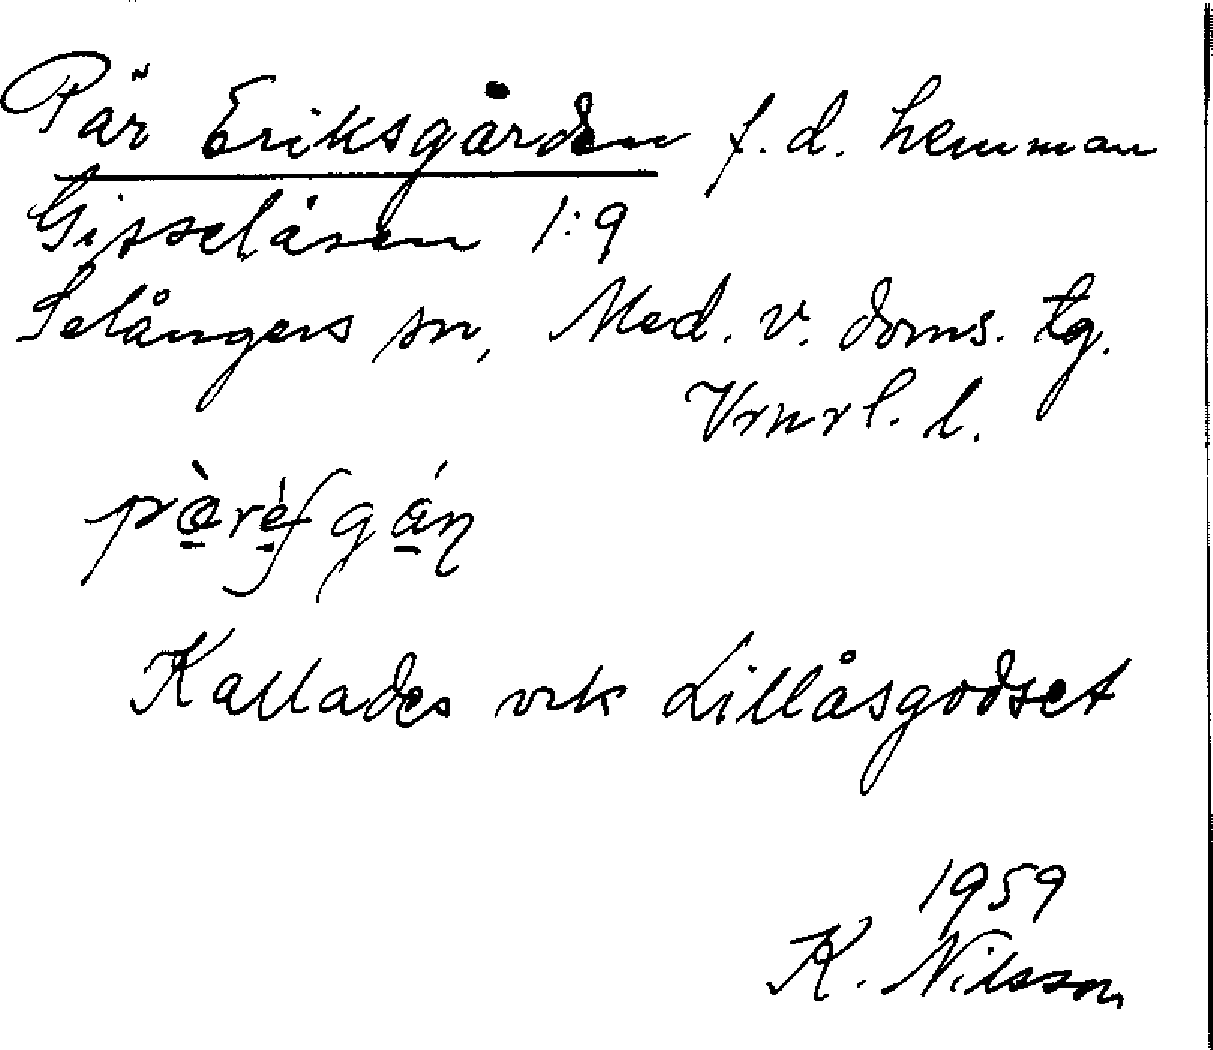 Pär Eriksgården f.d. hemman
Gisselåsen 1:9
Selångers sn, Med. v. doms. tg.
Vrnrl. l.
Kallades Lillåsgodset
1959
K. Nilsson